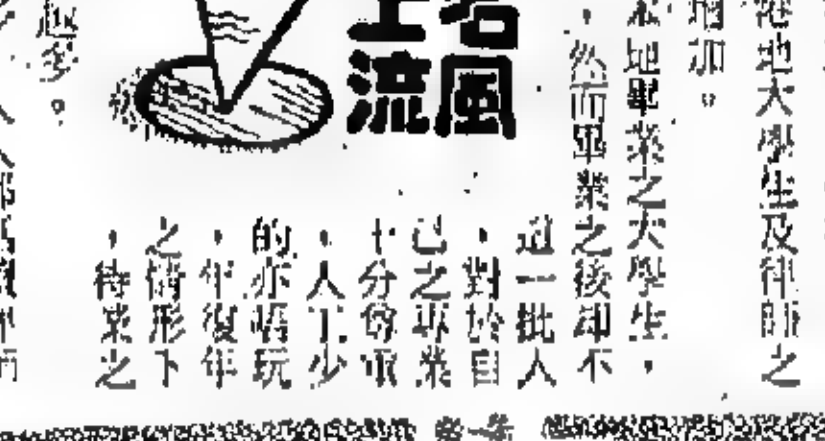 港地大學生及律師之
增加。
本地畢業之大學生，
，然而畢業之後却不
這一批人
，對於自
己之專業
十分尊重
，人工少
的亦唔玩
，年復年
之情形下
，待業之
越多。
名風
上流